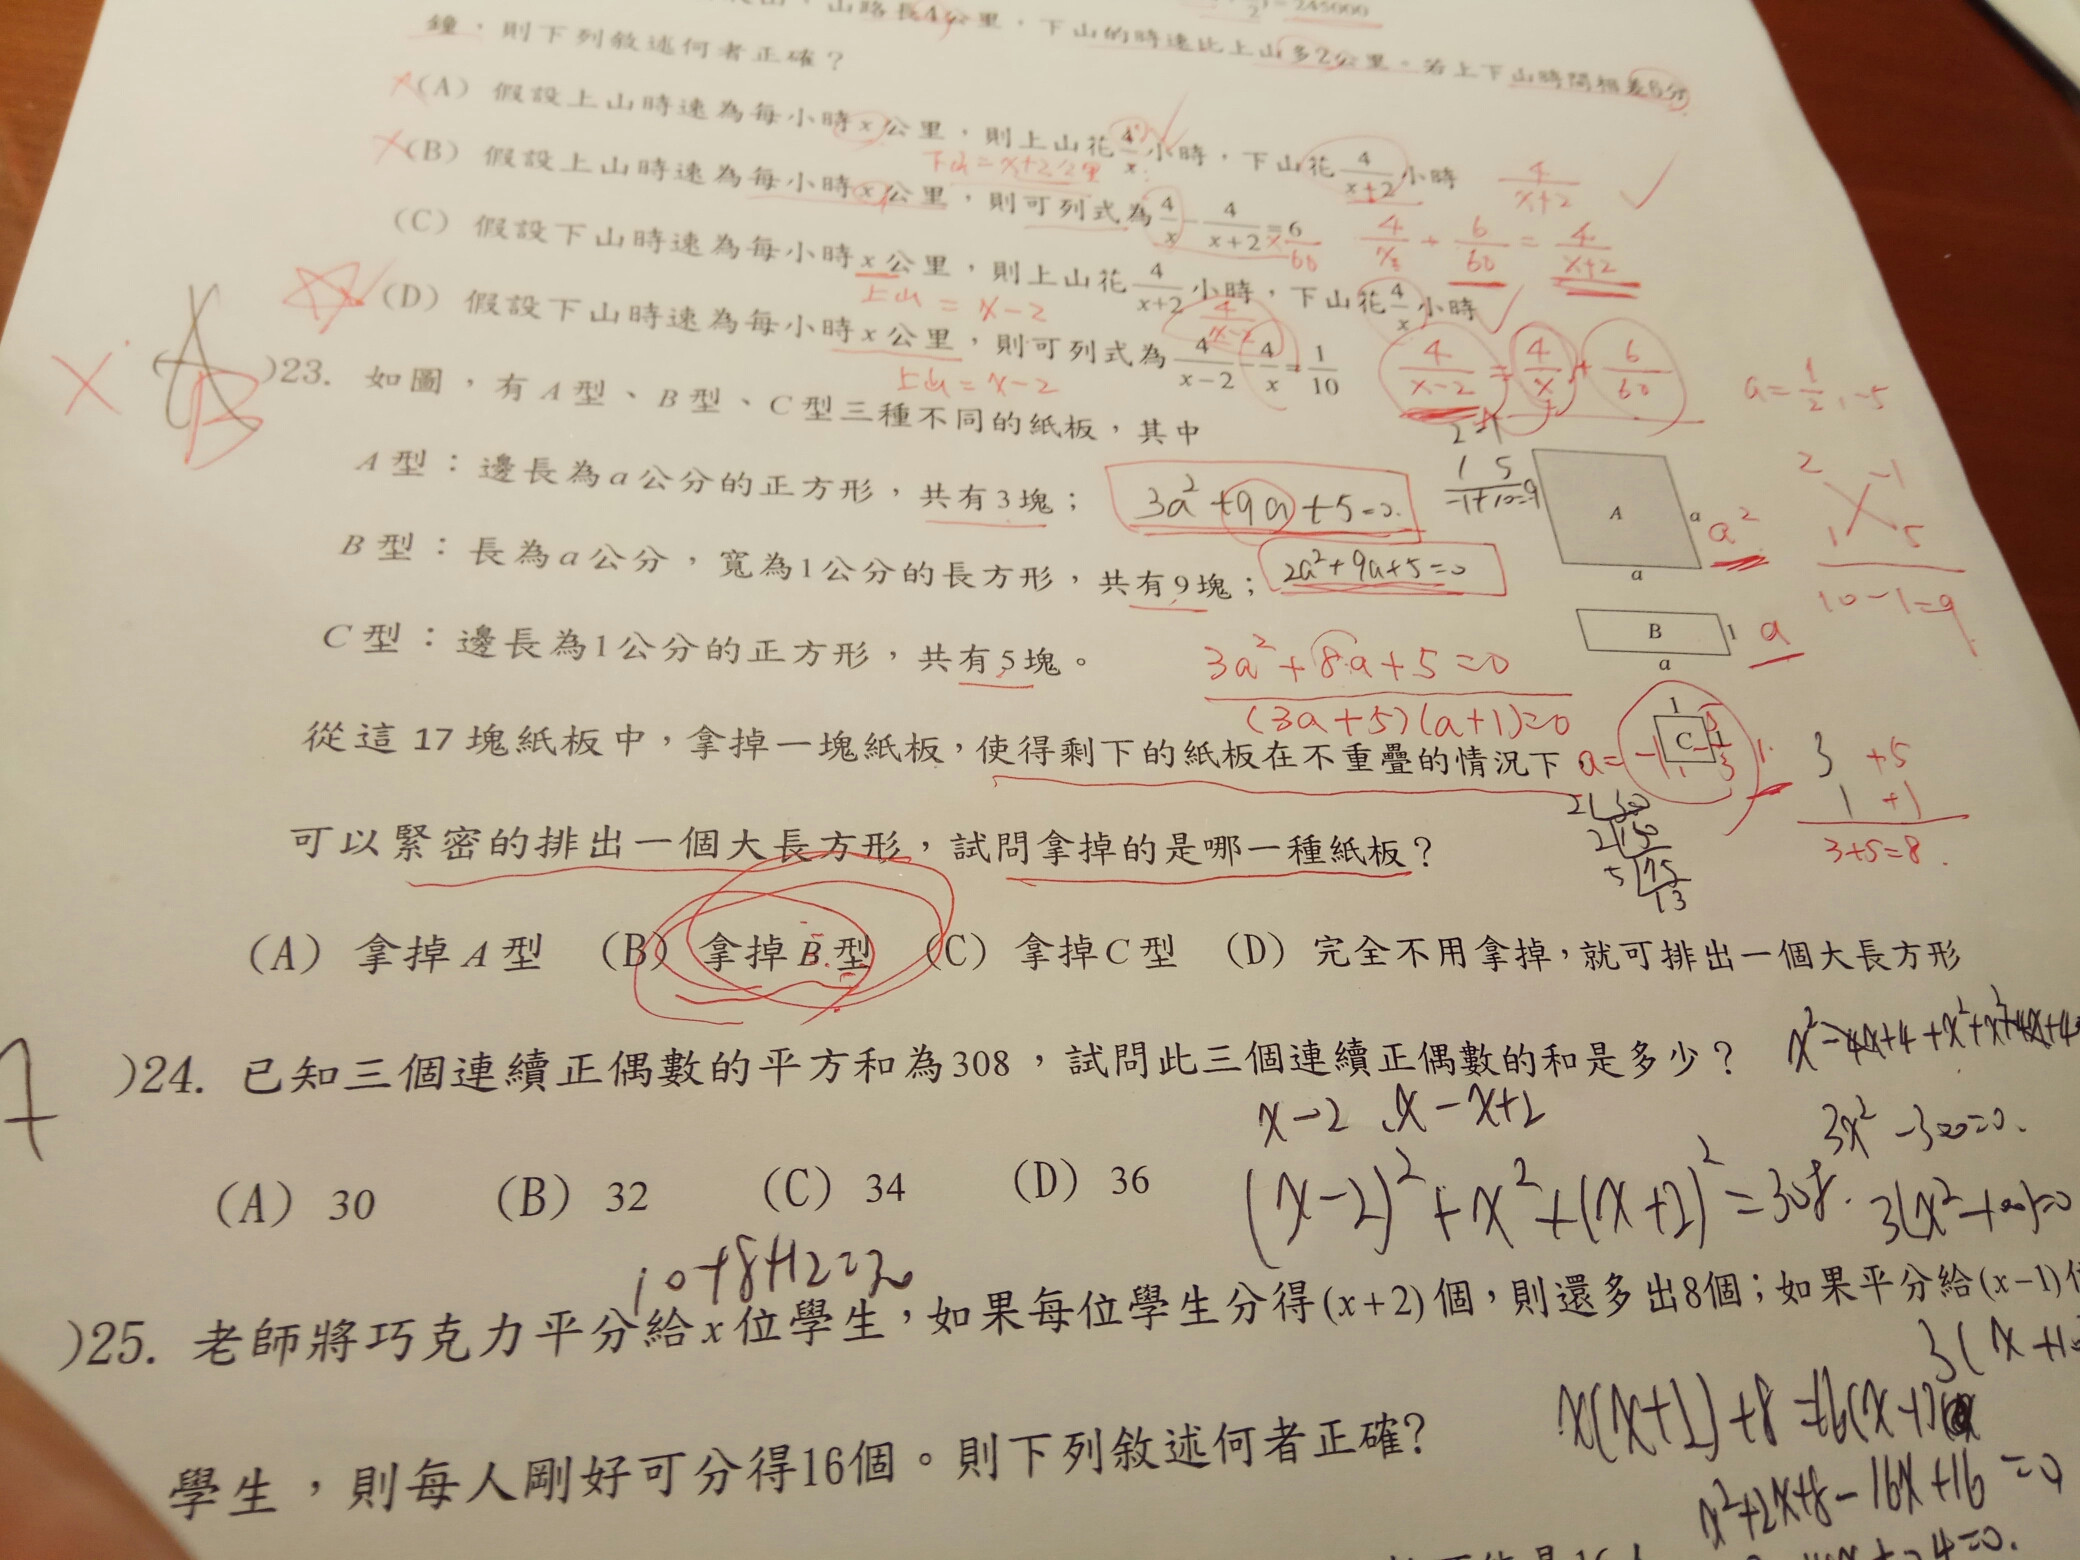 山路長4公里,下山的時速比上山多2公里。若上下山時間相差6分
鐘,則下列敘述何者正確?
(A) 假設上山時速為每小時x公里,則上山花4/x小時,下山花4/(x+2)小時
下山=x+2公里
4/(x+2)
(B) 假設上山時速為每小時x公里,則可列式為4/x-4/(x+2)=6
6/60
4/x + 6/60 = 4/(x+2)
(C) 假設下山時速為每小時x公里,則上山花4/(x+2)小時,下山花4/x小時
上山=x-2
4/(x-2)
(D) 假設下山時速為每小時x公里,則可列式為4/(x-2)-4/x=1/10
上山=x-2
4/(x-2)=4/x+6/60
a=1/2,-5
B
)23. 如圖,有A型、B型、C型三種不同的紙板,其中
A型:邊長為a公分的正方形,共有3塊;
3a²+9a+5=0
2 -1
1 5
-1+10=9
A a
a
a²
2 -1
1 5
10-1=9
B型:長為a公分,寬為1公分的長方形,共有9塊;
2a²+9a+5=0
B 1
a
a
C型:邊長為1公分的正方形,共有5塊。
3a²+8a+5=0
(3a+5)(a+1)=0
1
C 1
從這17塊紙板中,拿掉一塊紙板,使得剩下的紙板在不重疊的情況下
3 +5
1 +1
3+5=8
可以緊密的排出一個大長方形,試問拿掉的是哪一種紙板?
(A) 拿掉A型 (B) 拿掉B型 (C) 拿掉C型 (D) 完全不用拿掉,就可排出一個大長方形
)24. 已知三個連續正偶數的平方和為308,試問此三個連續正偶數的和是多少?
x²-4x+4+x²+x²+4x+4
x-2 x-x+2
3x²-300=0
(A) 30 (B) 32 (C) 34 (D) 36
(x-2)²+x²+(x+2)²=308
3(x²-100)=0
10+8+12=30
)25. 老師將巧克力平分給x位學生,如果每位學生分得(x+2)個,則還多出8個;如果平分給(x-1)位
學生,則每人剛好可分得16個。則下列敘述何者正確?
x(x+2)+8=16(x-1)
x²+2x+8-16x+16=0